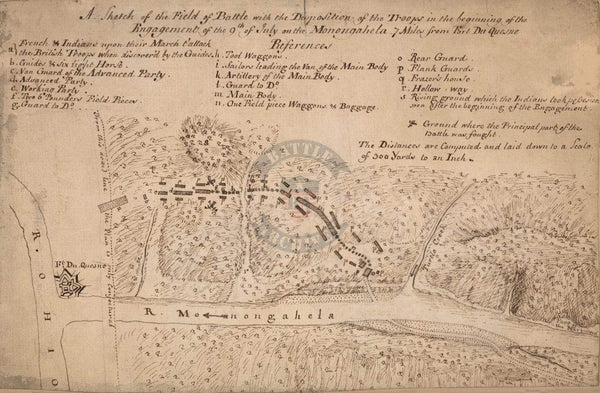 A Sketch of the Field of Battle with the Disposition of the Troops in the beginning of the
Engagement of the 9th of July on the Monongahela 7 Miles from Fort Du Quesne
References
a French & Indians upon their March t'attack
the British Troops when discover'd by the Guides
b. Guides & six light Horse.
c. Van Guard of the Advanced Party.
d. Advanced Party.
e. Working Party.
f. Two 6 Pounders Field Pieces.
g. Guard to Do.
h. Tool Waggons.
i. Sailors leading the Van of the Main Body
k. Artillery of the Main Body.
l. Guard to Do.
m. Main Body.
n. One Field piece Waggons & Baggage.
o Rear Guard.
p Flank Guards.
q Frazer's house.
r. Hollow way
s Rising ground which the Indians took possession
soon after the beginning of the Engagement.
* Ground where the Principal part of the
Battle was fought.
The Distances are Computed and laid down to a Scale
of 300 Yards to an Inch.
the Plan is only Conjectured
Turtle Creek
Ft. Du Quesne
R. Monongahela
R. OHIO